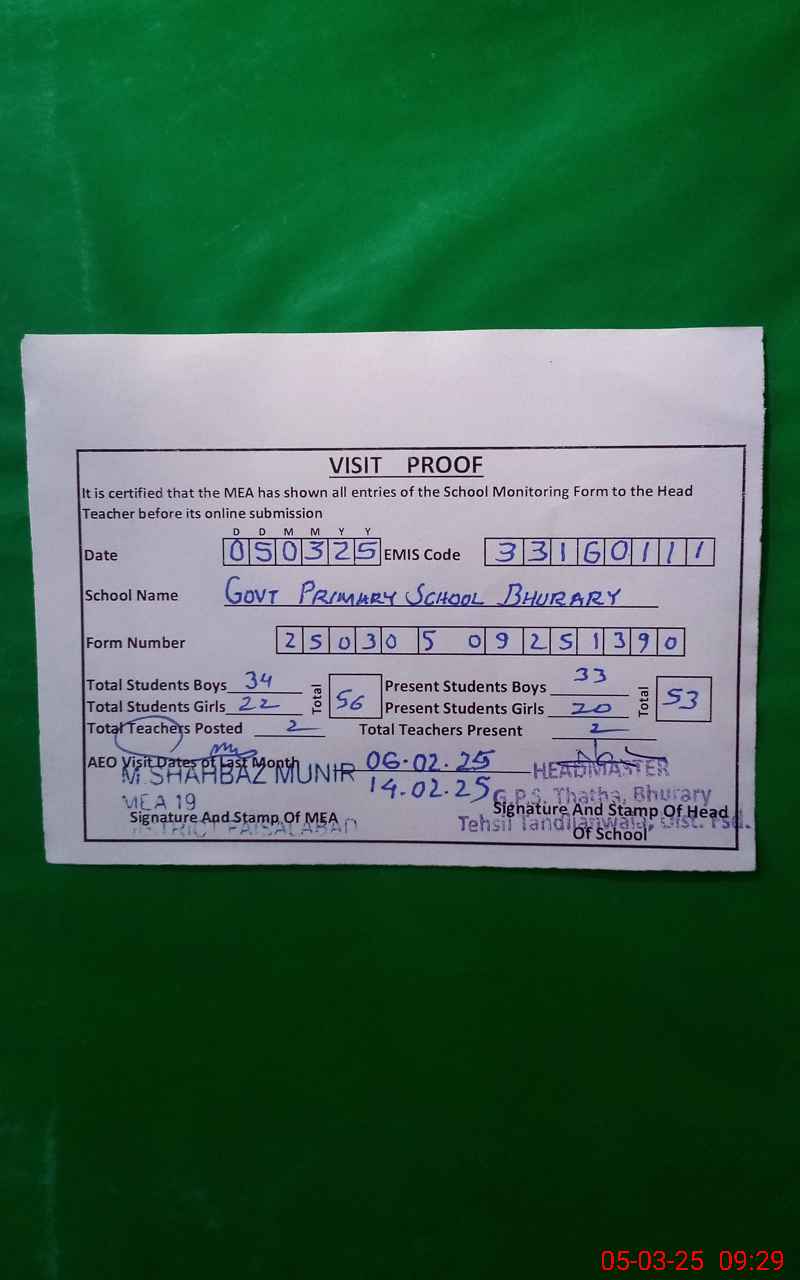 VISIT PROOF
It is certified that the MEA has shown all entries of the School Monitoring Form to the Head
Teacher before its online submission
D D M M Y Y
Date 0 5 0 3 2 5 EMIS Code 3 3 1 6 0 1 1 1
School Name GOVT PRIMARY SCHOOL BHURARY
Form Number 2 5 0 3 0 5 0 9 2 5 1 3 9 0
Total Students Boys 34 Total 56 Present Students Boys 33 Total 53
Total Students Girls 22 Present Students Girls 20
Total Teachers Posted 2 Total Teachers Present 2
AEO Visit Dates of Last Month 06.02.25
14.02.25
M.SHAHBAZ MUNIR
MEA 19
DISTRICT FAISALABAD
Signature And Stamp Of MEA
HEADMASTER
G.P.S. Thatha, Bhurary
Tehsil Tandlianwala, Dist. Fsd.
Signature And Stamp Of Head
Of School
05-03-25 09:29